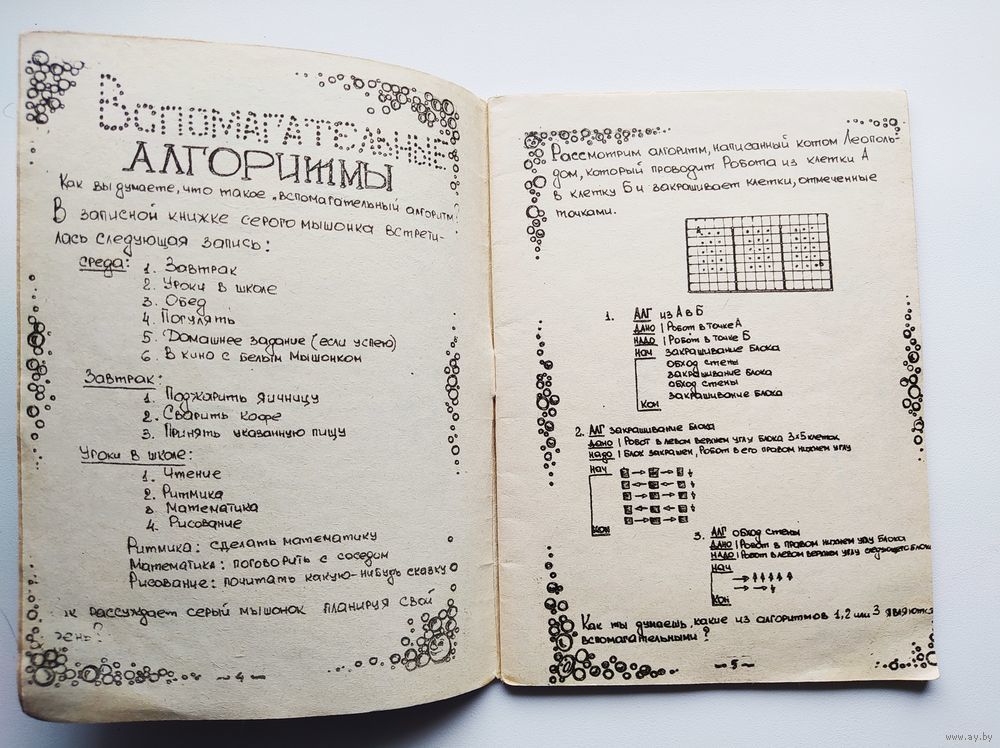 Вспомагательные
алгоритмы
Как вы думаете, что такое „вспомагательный алгоритм"?
В записной книжке серого мышонка встрети-
лась следующая запись:
среда:
1. Завтрак
2. Уроки в школе
3. Обед
4. Погулять
5. Домашнее задание (если успею)
6. В кино с белым мышонком
Завтрак:
1. Поджарить яичницу
2. Сварить кофе
3. Принять указанную пищу
Уроки в школе:
1. Чтение
2. Ритмика
3. Математика
4. Рисование
Ритмика: сделать математику
Математика: поговорить с соседом
Рисование: почитать какую-нибудь сказку
к рассуждает серый мышонок планируя свой
день?
4
Рассмотрим алгоритм, написанный котом Леополь-
дом, который проводит Робота из клетки А
в клетку Б и закрашивает клетки, отмеченные
точками.
А
Б
1. алг из А в Б
дано | Робот в точке А
надо | Робот в точке Б
нач закрашивание блока
обход стены
закрашивание блока
обход стены
закрашивание блока
кон
2. алг закрашивание блока
дано | Робот в левом верхнем углу блока 3×5 клеток
надо | Блок закрашен, Робот в его правом нижнем углу
нач
кон
3. алг обход стены
дано | Робот в правом нижнем углу блока
надо | Робот в левом верхнем углу следующего блока
нач
кон
Как ты думаешь, какие из алгоритмов 1, 2 или 3 являются
вспомагательными?
5
www.ay.by